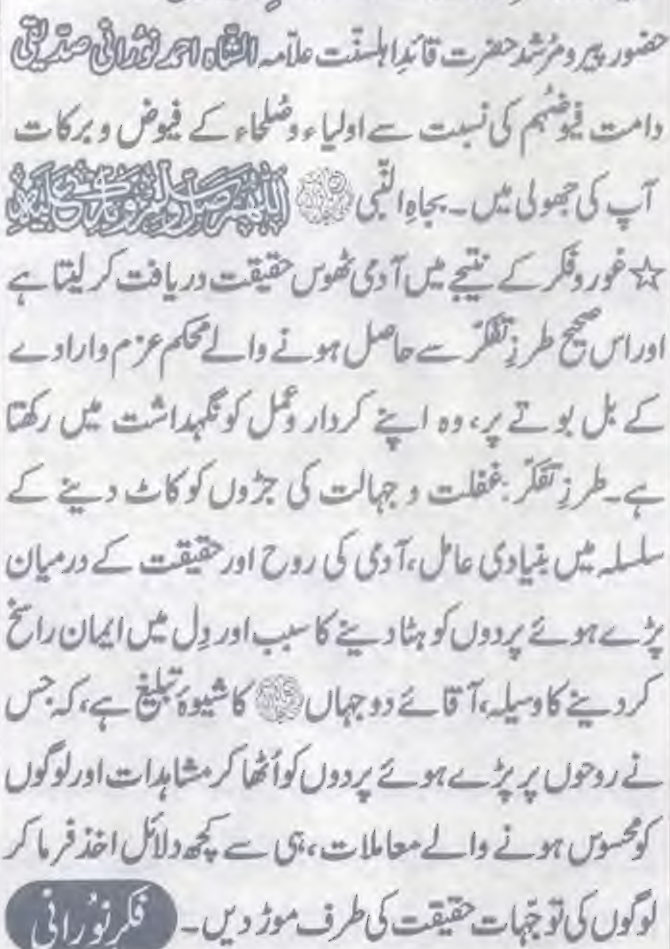 حضور پیر و مُرشد حضرت قائدِ اہلسنّت علاّمہ الشّاہ احمد نُورانی صدّیقی
دامت فیوضُہم کی نسبت سے اولیاء و صُلحاء کے فیوض و برکات
آپ کی جھولی میں۔ بجاہِ النّبی ﷺ اللّٰھم صل وسلم وبارک علیہ
☆ غور و فکر کے نتیجے میں آدمی ٹھوس حقیقت دریافت کر لیتا ہے
اور اس صحیح طرزِ تفکّر سے حاصل ہونے والے محکم عزم و ارادے
کے بل بوتے پر، وہ اپنے کردار و عمل کو نگہداشت میں رکھتا
ہے۔ طرزِ تفکّر: غفلت و جہالت کی جڑوں کو کاٹ دینے کے
سلسلہ میں بنیادی عامل، آدمی کی روح اور حقیقت کے درمیان
پڑے ہوئے پردوں کو ہٹا دینے کا سبب اور دِل میں ایمان راسخ
کر دینے کا وسیلہ، آقائے دو جہاں ﷺ کا شیوۂ تبلیغ ہے، کہ جس
نے روحوں پر پڑے ہوئے پردوں کو اُٹھا کر مشاہدات اور لوگوں
کو محسوس ہونے والے معاملات، ہی سے کچھ دلائل اخذ فرما کر
لوگوں کی توجّہات حقیقت کی طرف موڑ دیں۔ فکرِ نُورانی